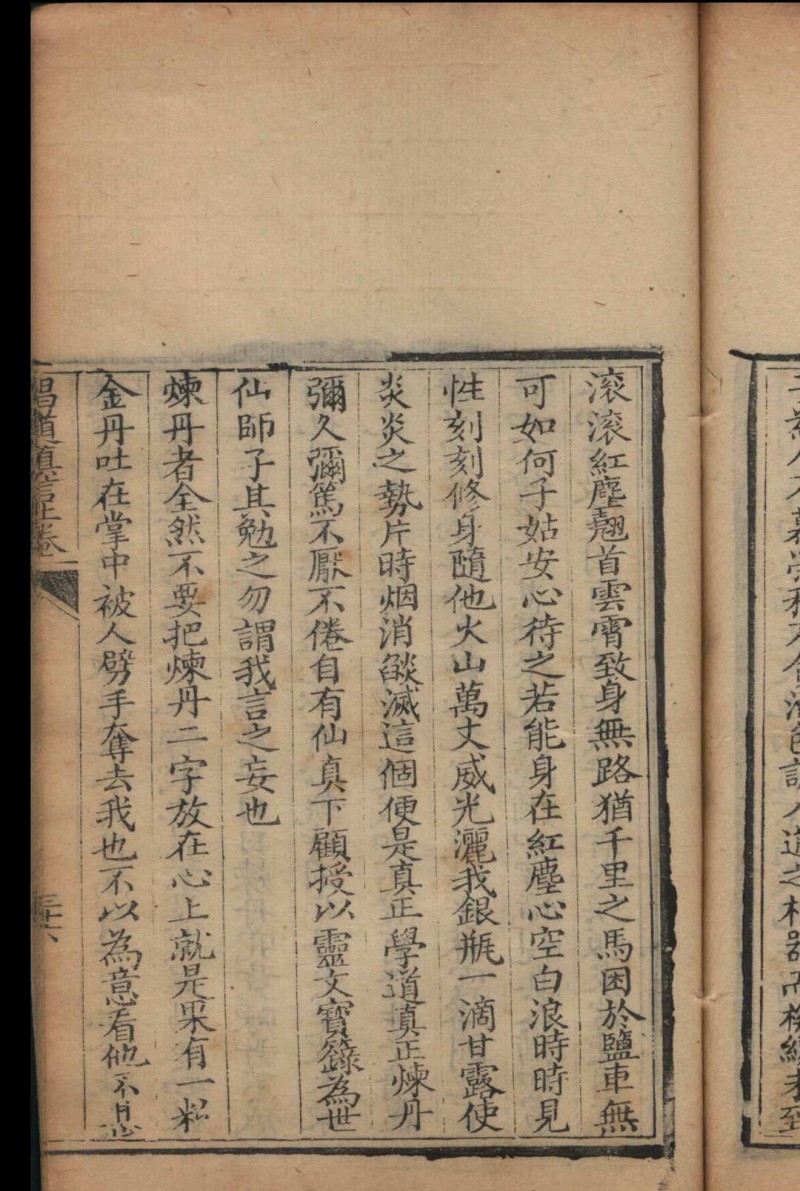 滚滚紅塵翹首雲霄致身無路猶千里之馬困於鹽車無
可如何子姑安心待之若能身在紅塵心空白浪時時見
性刻刻修身隨他火山萬丈威光灑我銀瓶一滴甘露使
炎炎之勢片時烟消燄滅這個便是真正學道真正煉丹
彌久彌篤不厭不倦自有仙真下顧授以靈文寶籙為世
仙師子其勉之勿謂我言之妄也
煉丹者全然不要把煉丹二字放在心上就是果有一粒
金丹吐在掌中被人劈手奪去我也不以為意看他不
唱道真言上卷
三十六